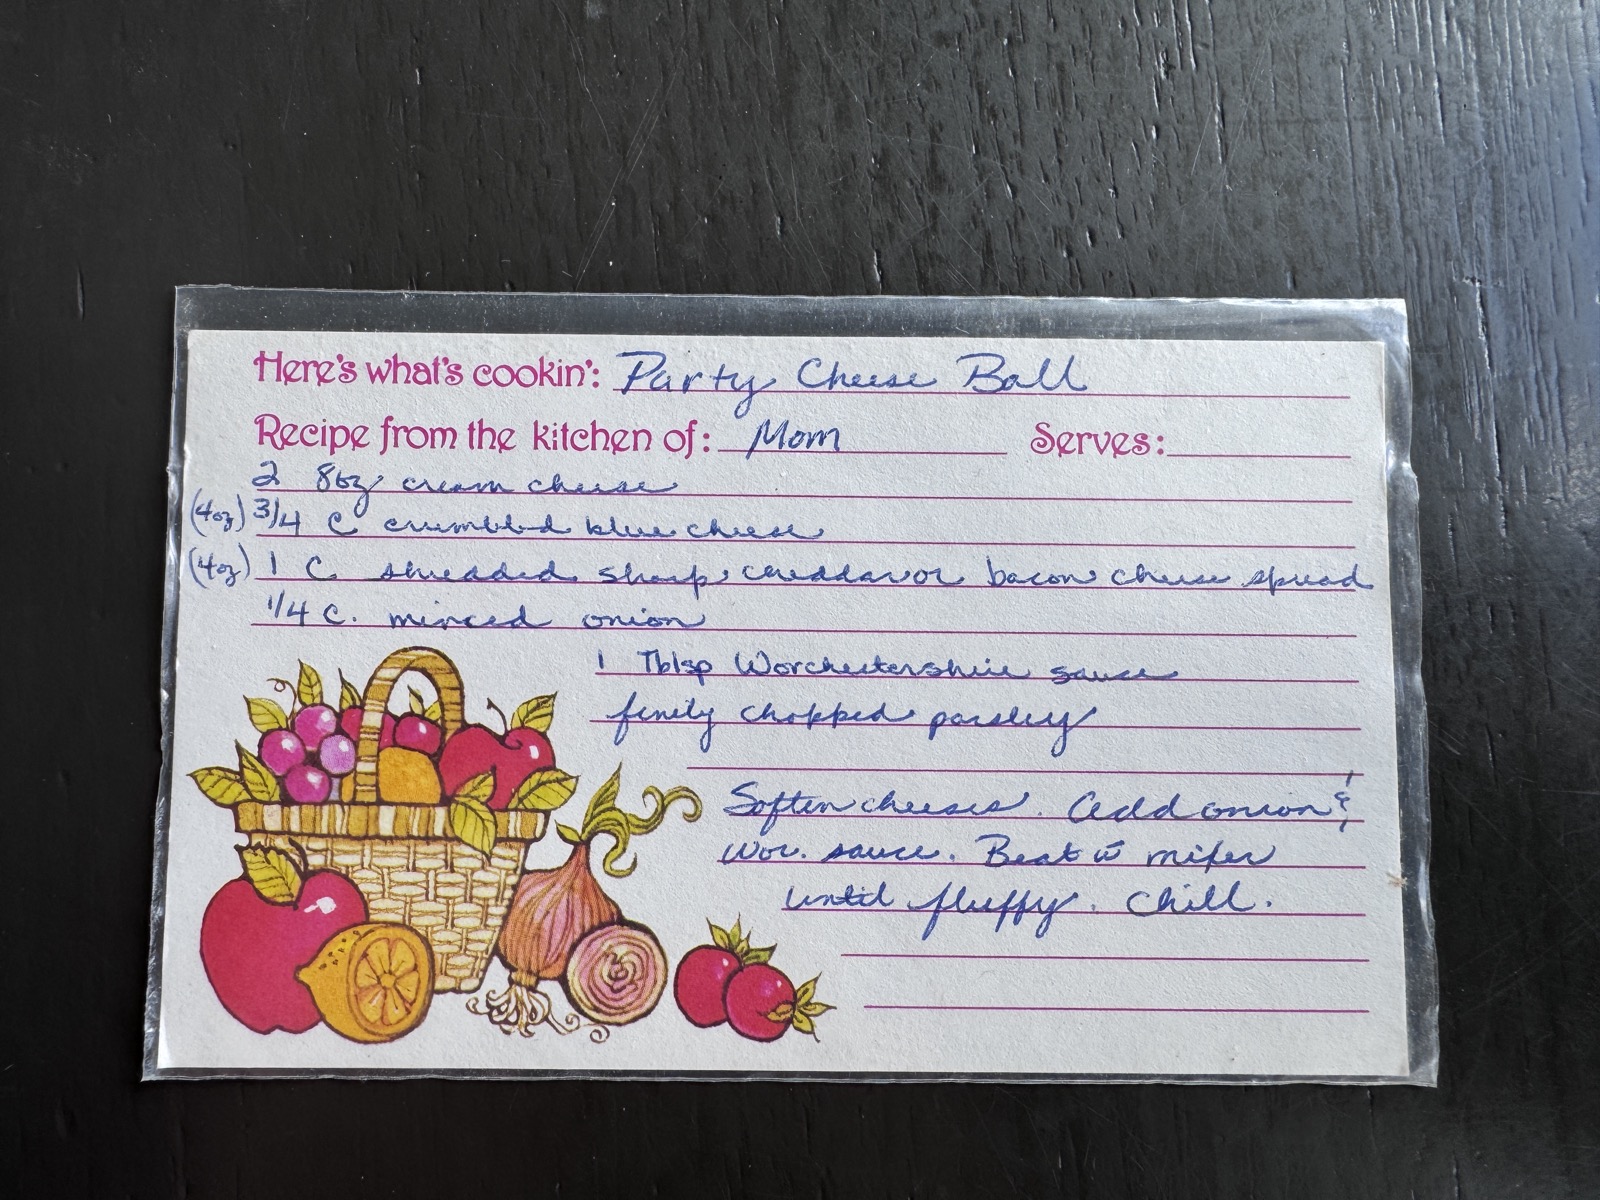 Here's what's cookin': Party Cheese Ball
Recipe from the kitchen of: Mom Serves:
2 8oz cream cheese
(4oz) 3/4 C crumbled blue cheese
(4oz) 1 C. shredded sharp cheddar or bacon cheese spread
1/4 C. minced onion
1 Tblsp Worchestershire sauce
finely chopped parsley
Soften cheeses. Add onion &
wor. sauce. Beat w̄ mixer
until fluffy. Chill.